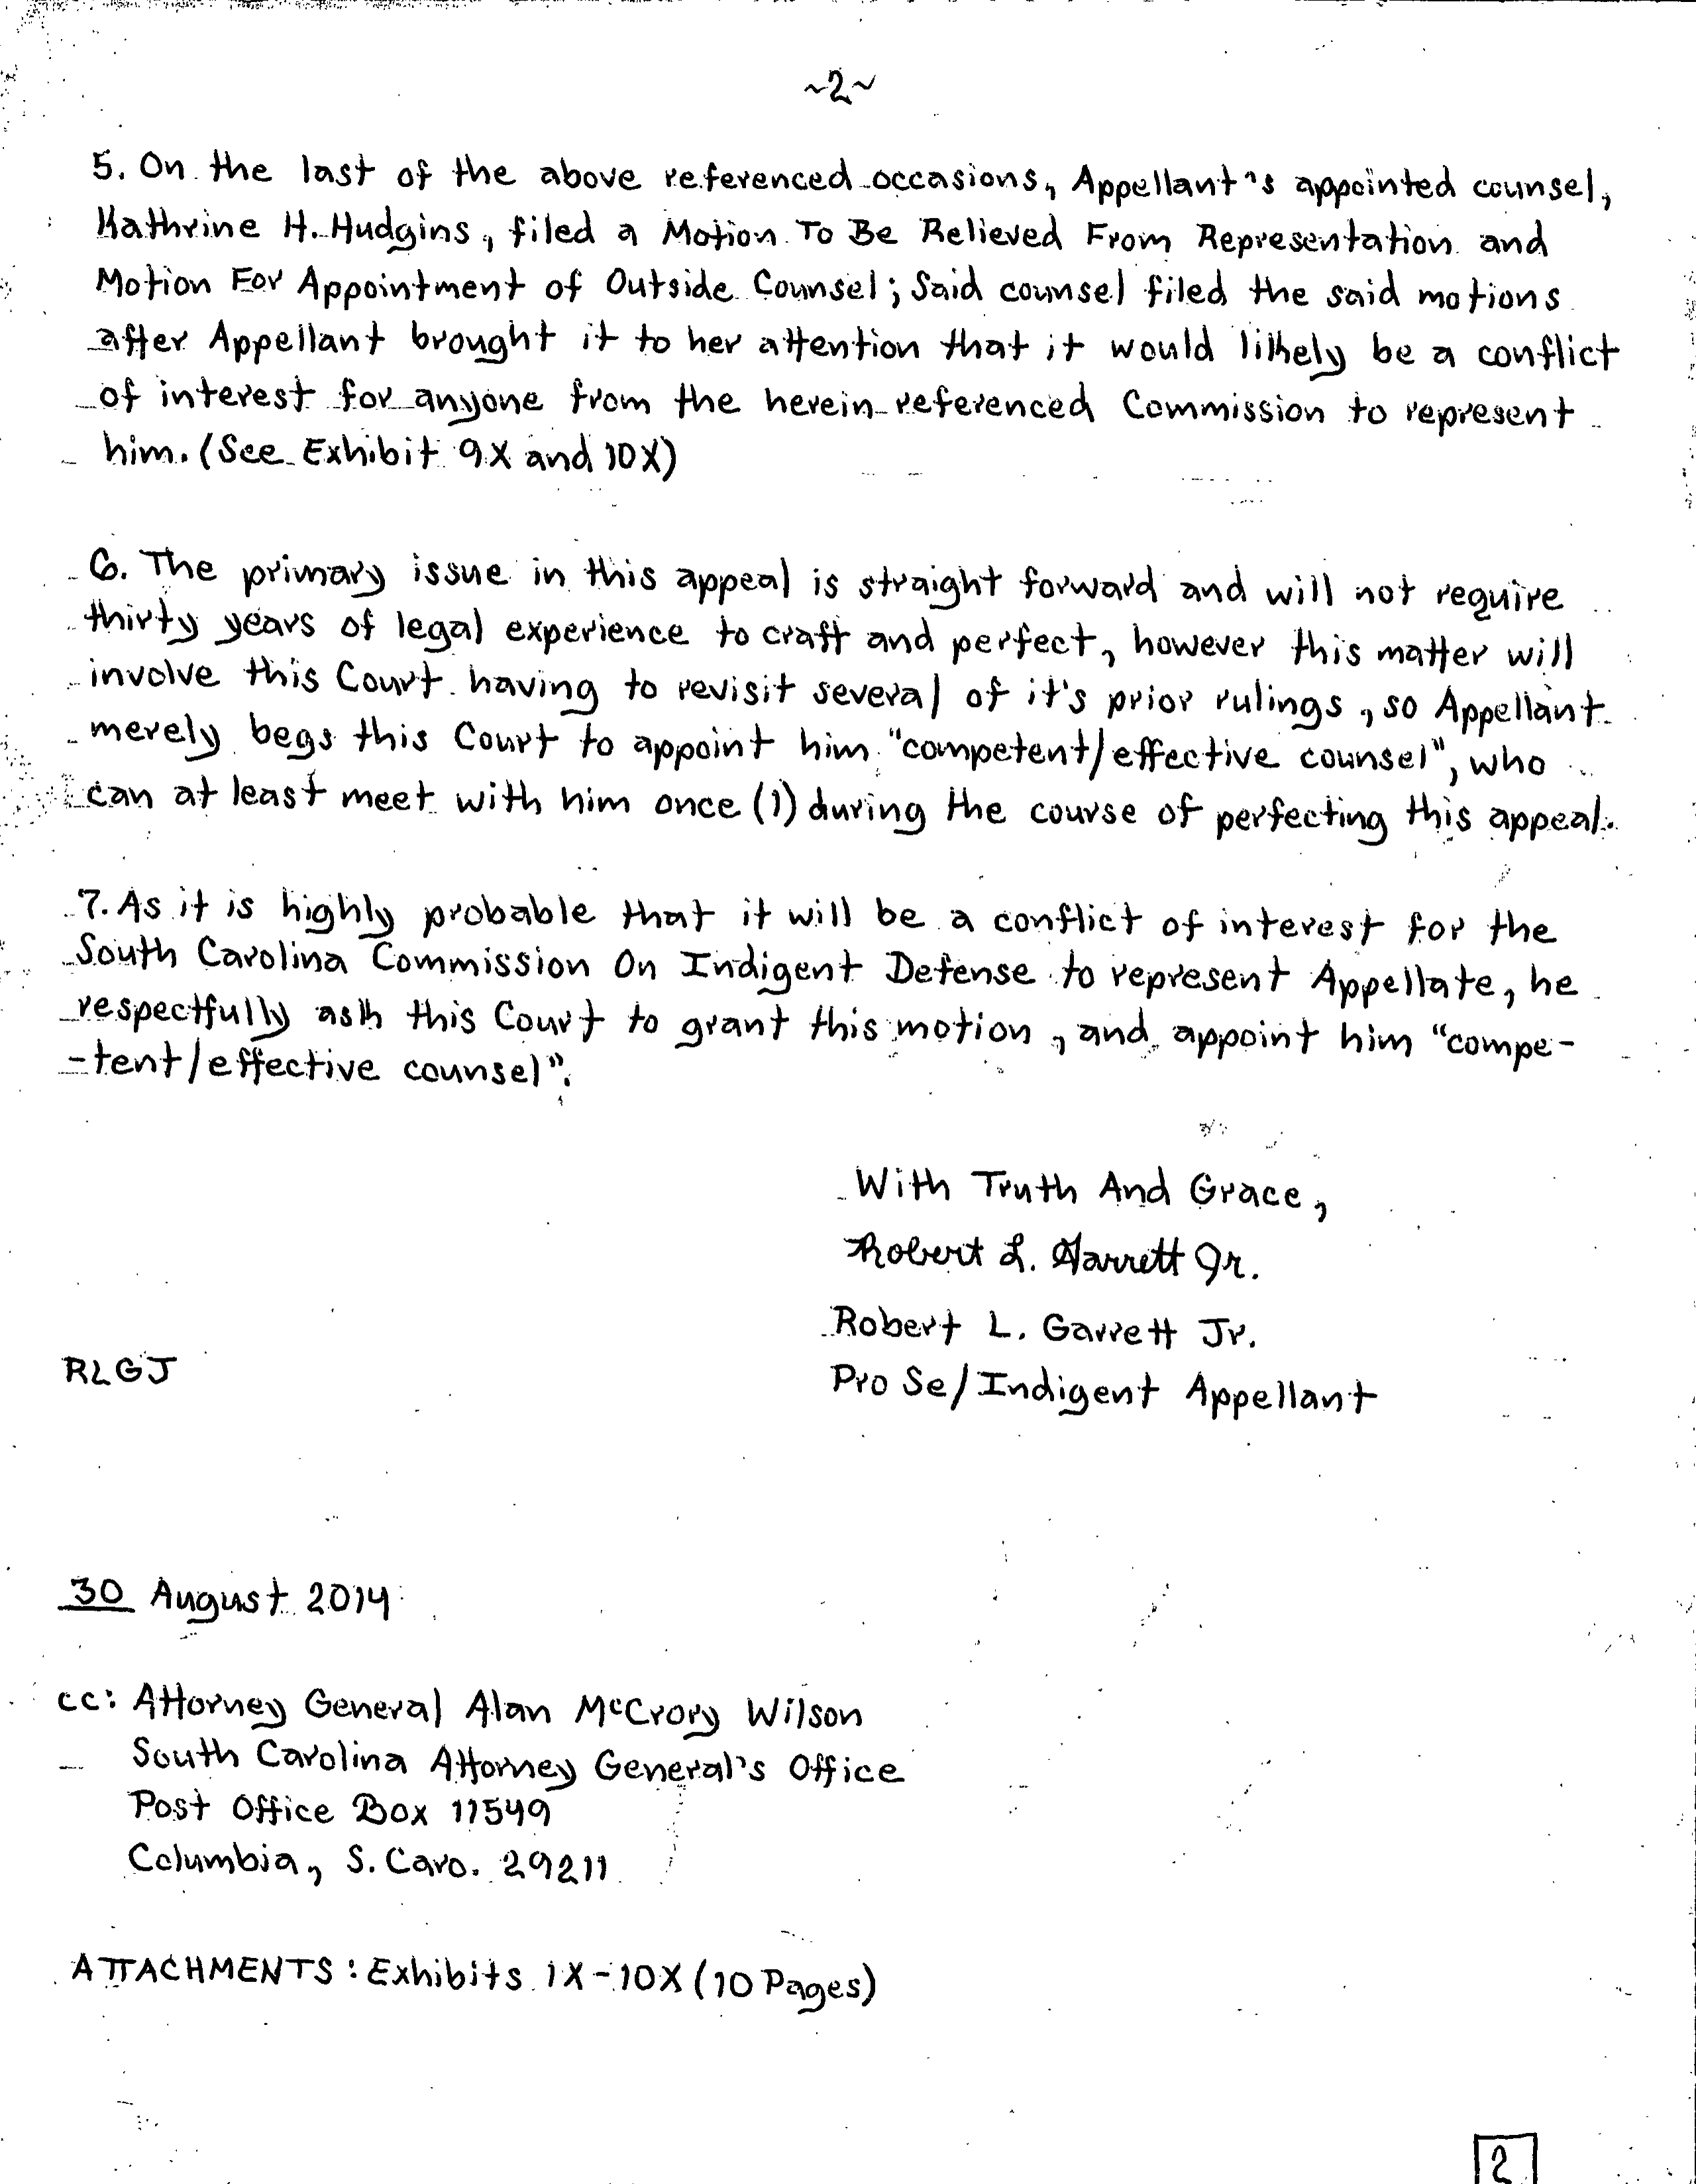 ~2~
5. On the last of the above referenced occasions, Appellant's appointed counsel,
Kathrine H. Hudgins, filed a Motion To Be Relieved From Representation and
Motion For Appointment of Outside Counsel; Said counsel filed the said motions
after Appellant brought it to her attention that it would likely be a conflict
of interest for anyone from the herein referenced Commission to represent
him. (See Exhibit 9X and 10X)
6. The primary issue in this appeal is straight forward and will not require
thirty years of legal experience to craft and perfect, however this matter will
involve this Court having to revisit several of it's prior rulings, so Appellant
merely begs this Court to appoint him "competent/effective counsel", who
can at least meet with him once (1) during the course of perfecting this appeal.
7. As it is highly probable that it will be a conflict of interest for the
South Carolina Commission On Indigent Defense to represent Appellate, he
respectfully ask this Court to grant this motion, and appoint him "compe-
-tent/effective counsel".
With Truth And Grace,
Robert L. Garrett Jr.
Robert L. Garrett Jr.
RLGJ
Pro Se/Indigent Appellant
30 August 2014
cc: Attorney General Alan McCrory Wilson
South Carolina Attorney General's Office
Post Office Box 11549
Columbia, S. Caro. 29211
ATTACHMENTS: Exhibits 1X-10X (10 Pages)
2